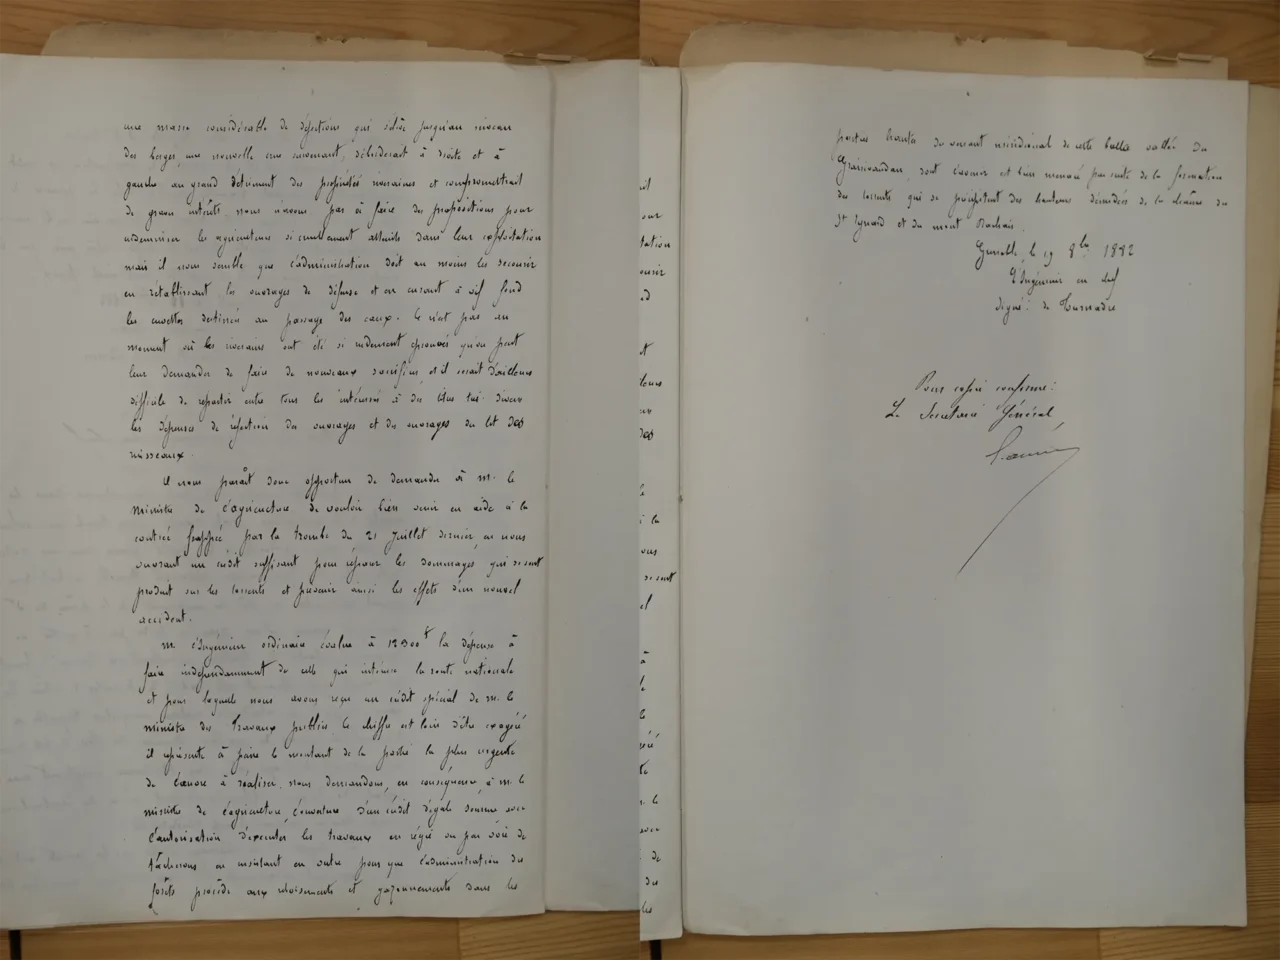 une masse considérable de déjections qui s'élève jusqu'au niveau
des berges, une nouvelle crue survenant, déborderait à droite et à
gauche au grand détriment des propriétés riveraines et compromettrait
de graves intérêts. nous n'avons pas à faire des propositions pour
indemniser les agriculteurs si cruellement atteints dans leur exploitation
mais il nous semble que l'administration doit au moins les secourir
en rétablissant les ouvrages de défense et en curant à vif fond
les cuvettes destinées au passage des eaux. Ce n'est pas au
moment où les riverains ont été si rudement éprouvés qu'on peut
leur demander de faire de nouveaux sacrifices, et il serait d'ailleurs
difficile de répartir entre tous les intéressés à des titres très divers
les dépenses de réfection des ouvrages et du lit des
ruisseaux.
Il nous paraît donc opportun de demander à M. le
Ministre de l'agriculture de vouloir bien venir en aide à la
contrée frappée par la trombe du 21 juillet dernier, en nous
ouvrant un crédit suffisant pour réparer les dommages qui se sont
produit sur les torrents et prévenir ainsi les effets d'un nouvel
accident.
M. l'Ingénieur ordinaire évalue à la dépense à
faire indépendamment de celle qui intéresse la route nationale
et pour laquelle nous avons reçu un crédit spécial de M. le
ministre des Travaux publics. le chiffre est loin d'être exagéré
il représente à peine le montant de la partie la plus urgente
de l'œuvre à réaliser. nous demandons, en conséquence, à M. le
ministre de l'agriculture, l'ouverture d'un crédit d'égale somme avec
l'autorisation d'exécuter les travaux en régie ou par voie de
tâcherons en insistant en outre pour que l'administration des
forêts procède aux reboisements et gazonnements dans les
parties hautes du versant méridional de cette belle vallée du
Graisivaudan, dont l'avenir est bien menacé par suite de la formation
des torrents qui se précipitent des hauteurs dénudées de la
St Eynard et du mont Rachais.
Grenoble, le 19 8bre 1882
L'Ingénieur en chef
signé: de Tournadre
Pour copie conforme:
Le Secrétaire Général,